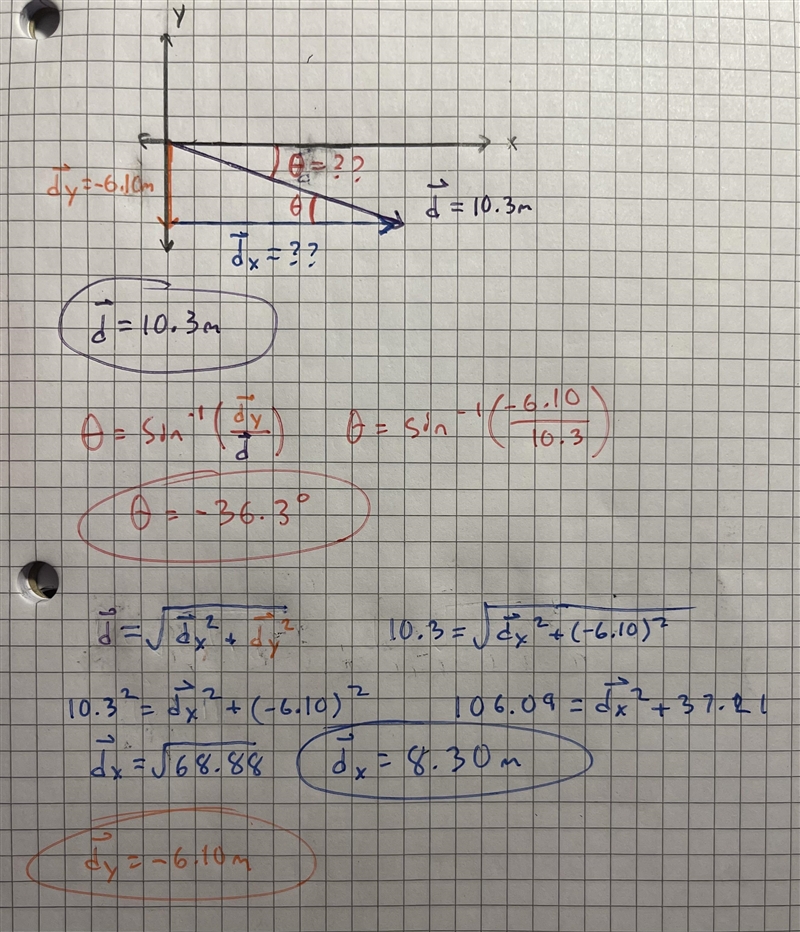 y
x
θ = ??
d⃗y = -6.10m
θ
d⃗ = 10.3m
d⃗x = ??
d⃗ = 10.3m
θ = sin⁻¹(d⃗y/d⃗) θ = sin⁻¹(-6.10/10.3)
θ = -36.3°
d⃗ = √d⃗x² + d⃗y² 10.3 = √d⃗x² + (-6.10)²
10.3² = d⃗x² + (-6.10)² 106.09 = d⃗x² + 37.21
d⃗x = √68.88 d⃗x = 8.30m
d⃗y = -6.10m